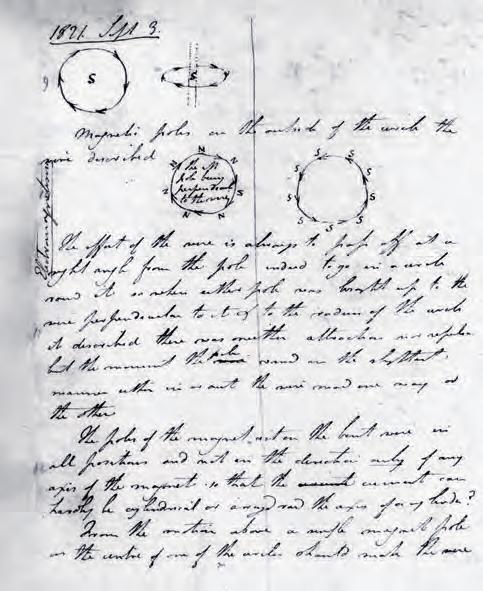 1821. Sept 3.
S
S
Magnetic poles on the outside of the circle the
wire described
N
N
N
the M
pole being
perpendicular
to the ring
S
S
S
S
S
S
S
S
Electromagnetism
The effort of the wire is always to pass off at a
right angle from the pole indeed to go in a circle
round it so when either pole was brought up to the
wire perpendicular to it & to the radius of the circle
it described there was neither attraction nor repulsion
but the moment the pole varied in the slightest
manner either in or out the wire moved one way or
the other
The poles of the magnet act on the bent wire in
all positions and not in the direction only of any
axis of the magnet so that the current can
hardly be cylindrical or arranged round the axis of a cylinder?
From the motion above a single magnet pole
in the centre of one of the circles should make the wire